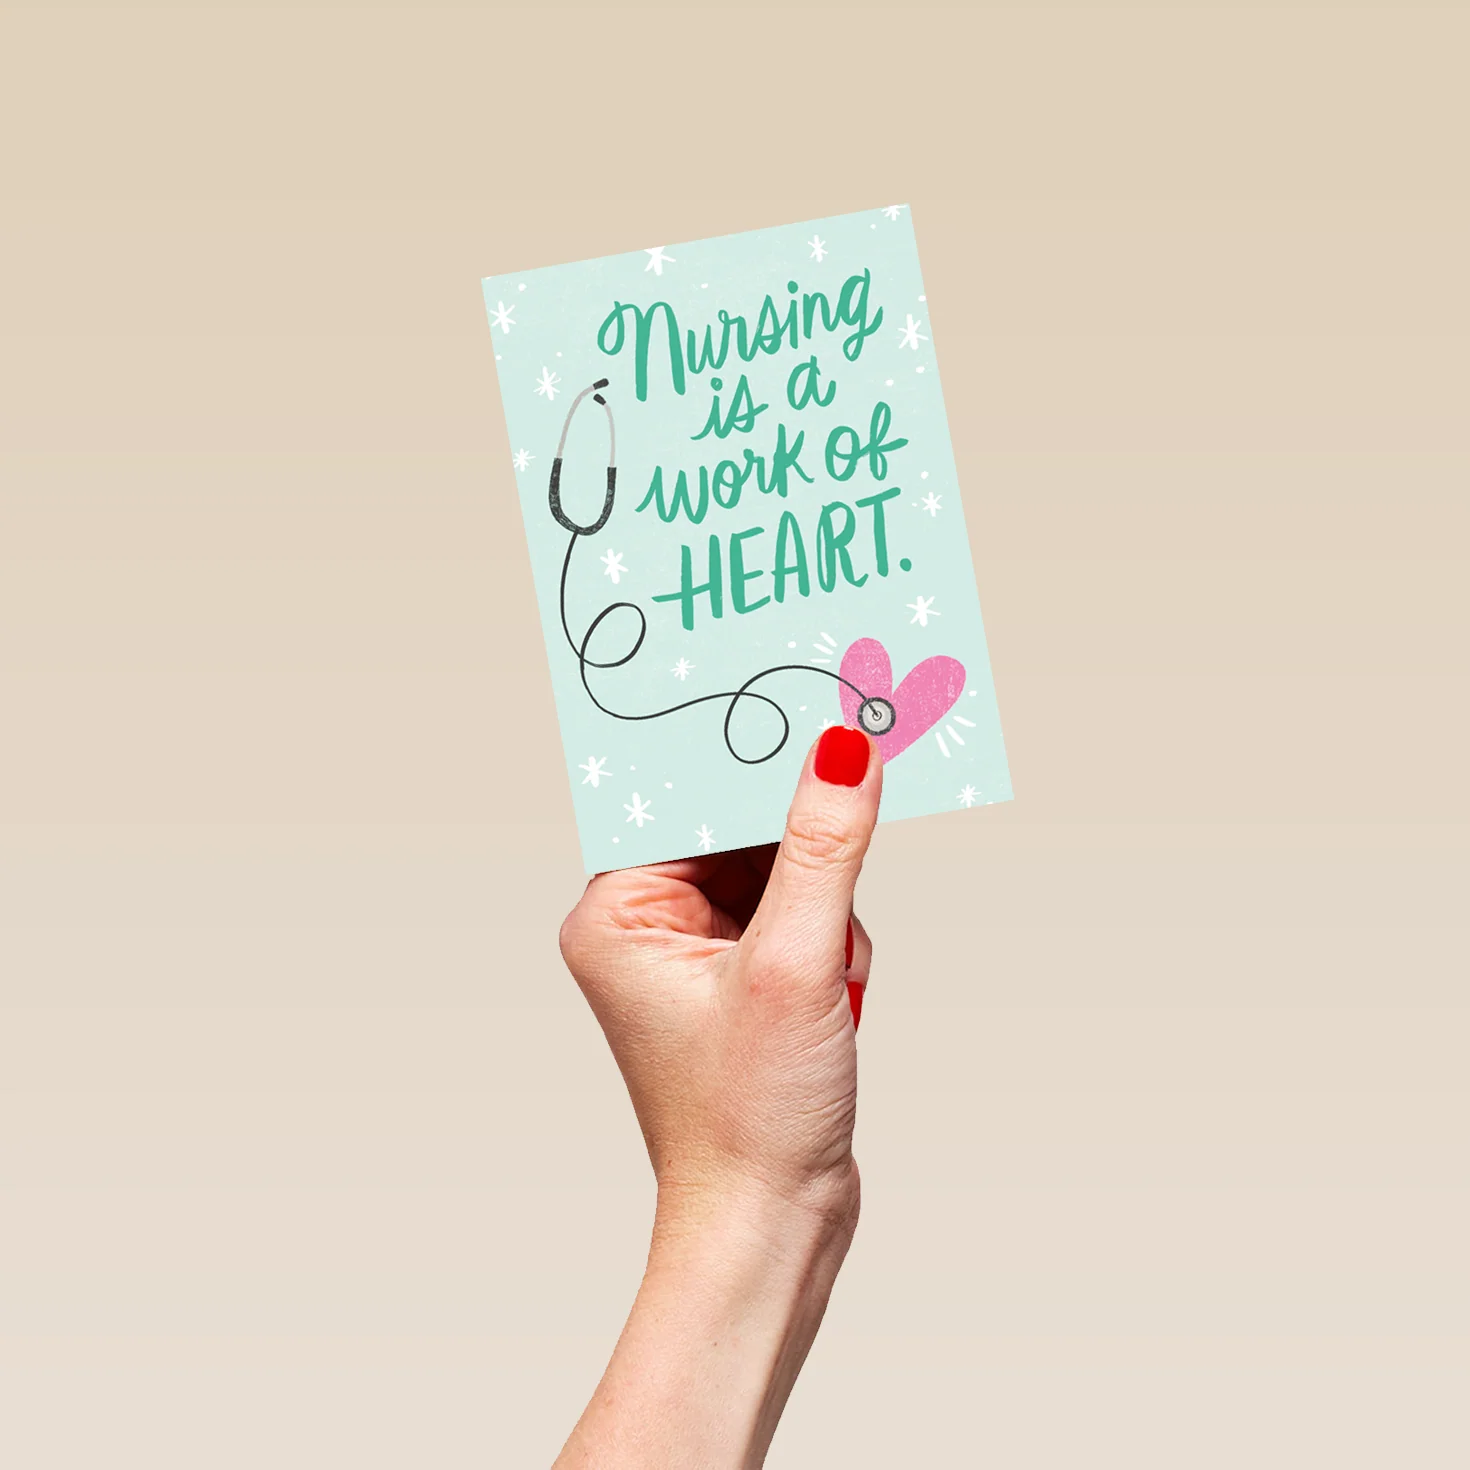 Nursing
is a
work of
HEART.